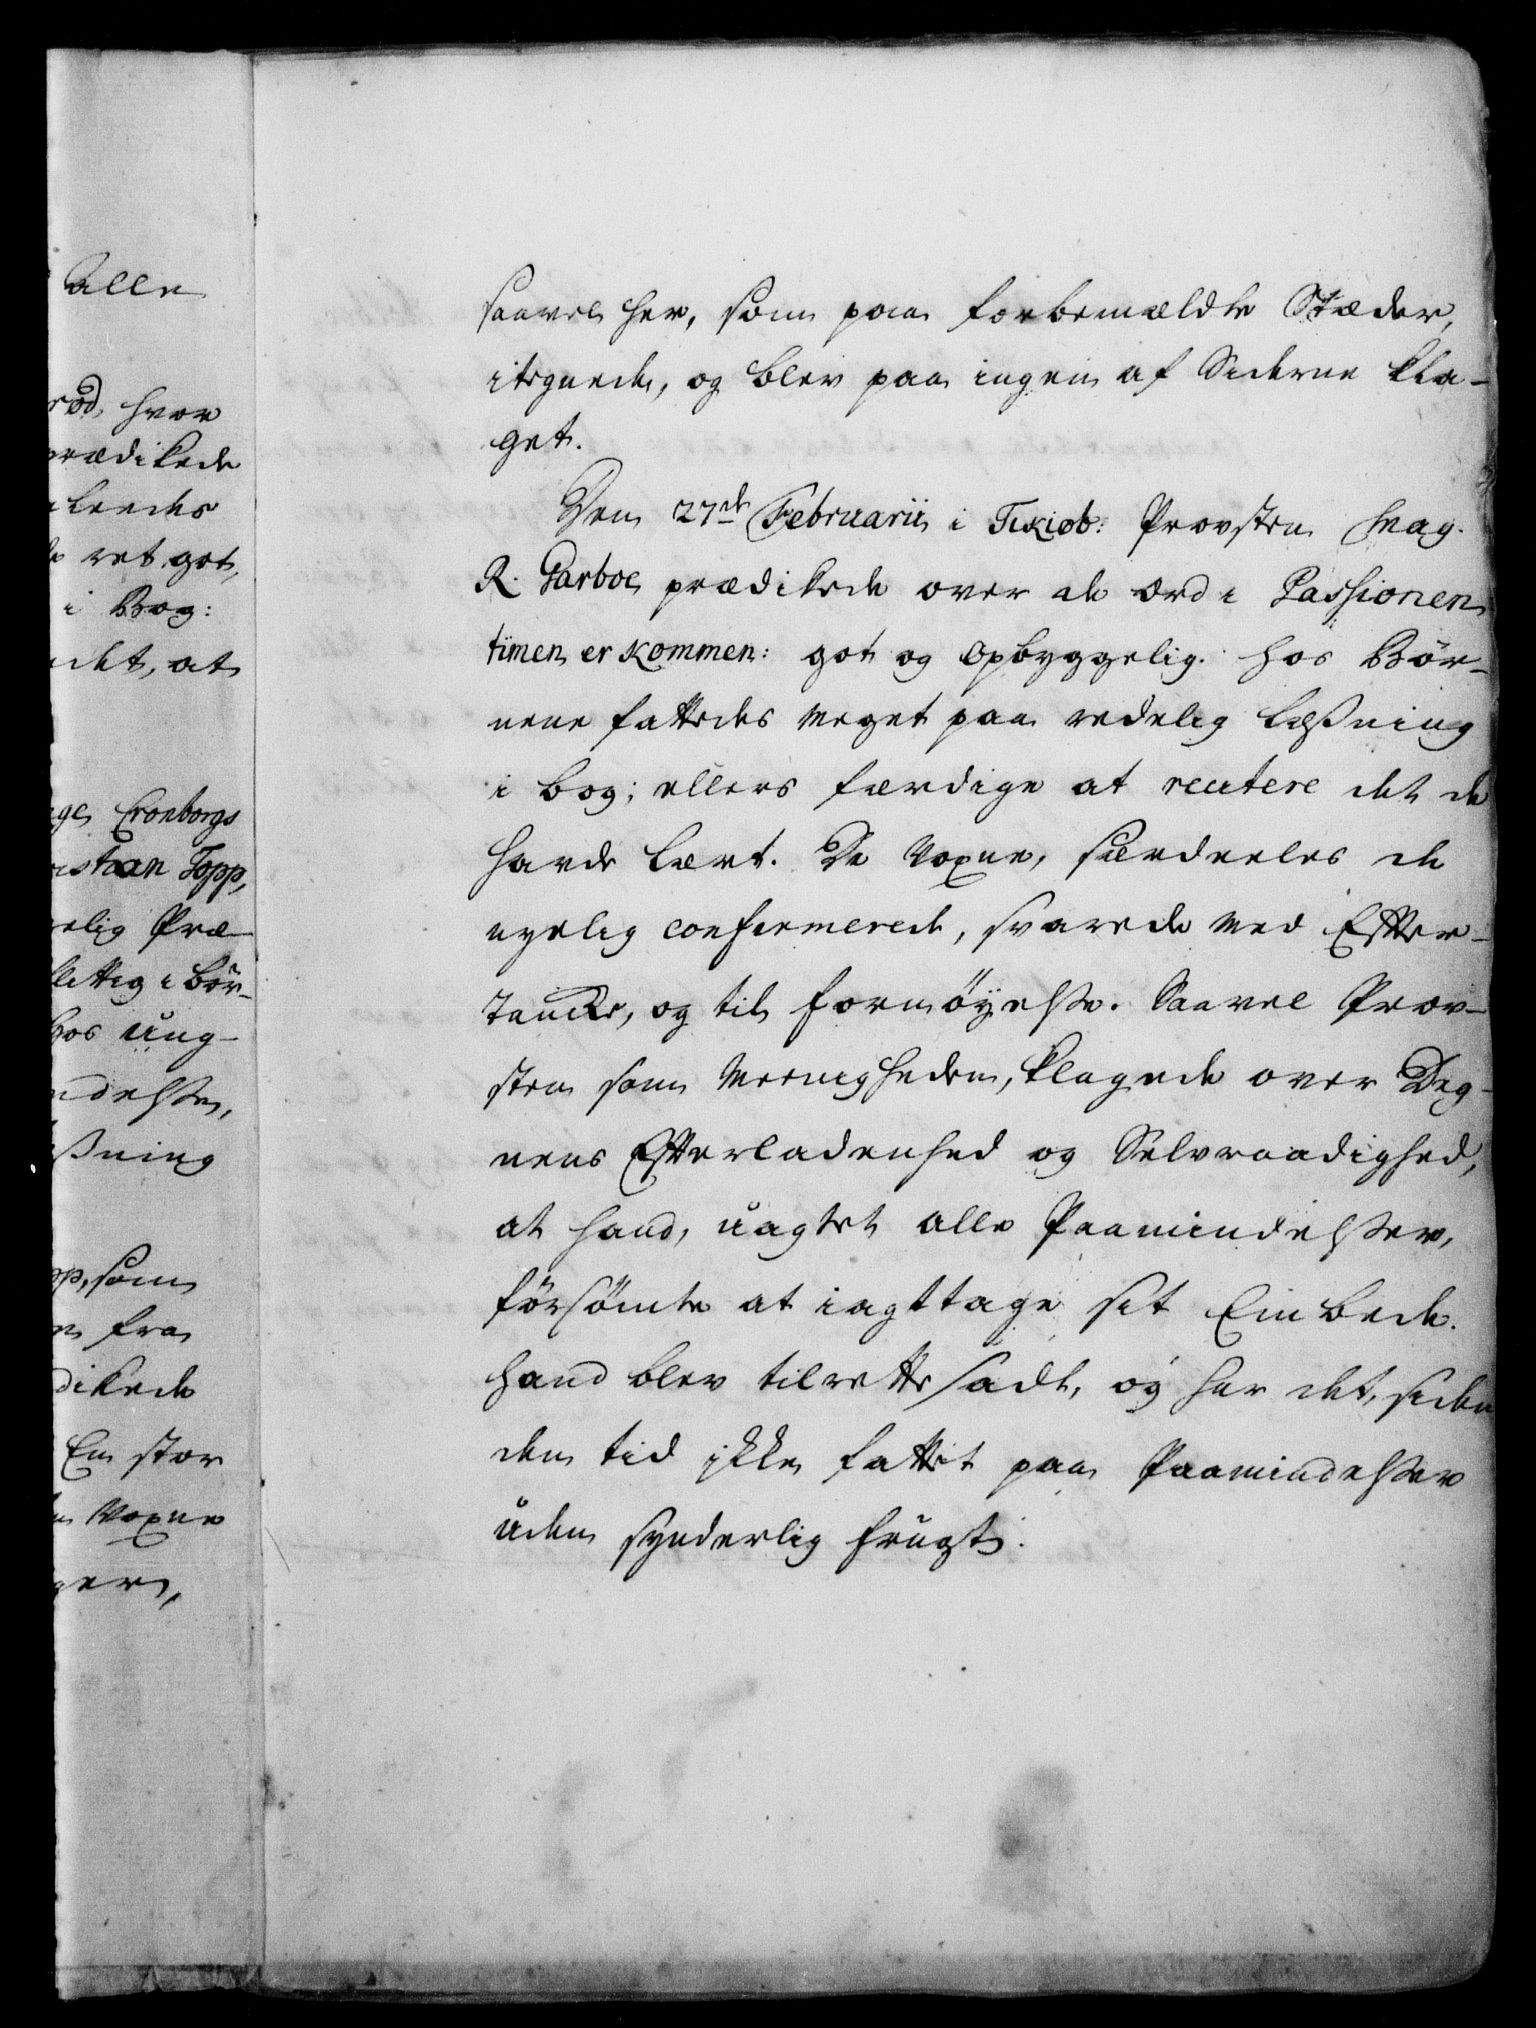 alle
röd, hvor
prædikede
leedes
ret got,
i Bog:
det, at
ge, Cronborgs
istian Topp,
elig Præ-
littig i bör-
hos ung-
ndelsse,
sning
pp, som
fra
dikede
En stor
Voxne
gers,
saavel her, som paa forbemældte Stæder,
itzguede, og blev paa ingen af Siderne kla-
get.
Den 27de Februarii i Tikiöb: Provsten Mag.
R. Garboe, prædikede over de ord i Passionen
tiimen er kommen: got og opbyggelig. hos Bör-
nene fattedes meget paa redelig læssning
i bog; ellers færdige at recitere det de
havde lært. De Voxne, særdeeles de
nyelig confirmerede, svarede med Effter-
tancke, og til fornöyelsse. Saavel Prov-
sten som Meenigheden, klagede over Deg-
nens Effterladenhed og Selvraadighed,
at hand, uagtet alle Paamindelsser,
försömte at iagttage sit Embede.
hand blev tilrettesadt, og har det, siden
den tid ikke fattet paa Paamindelsser
uden synderlig frugt.